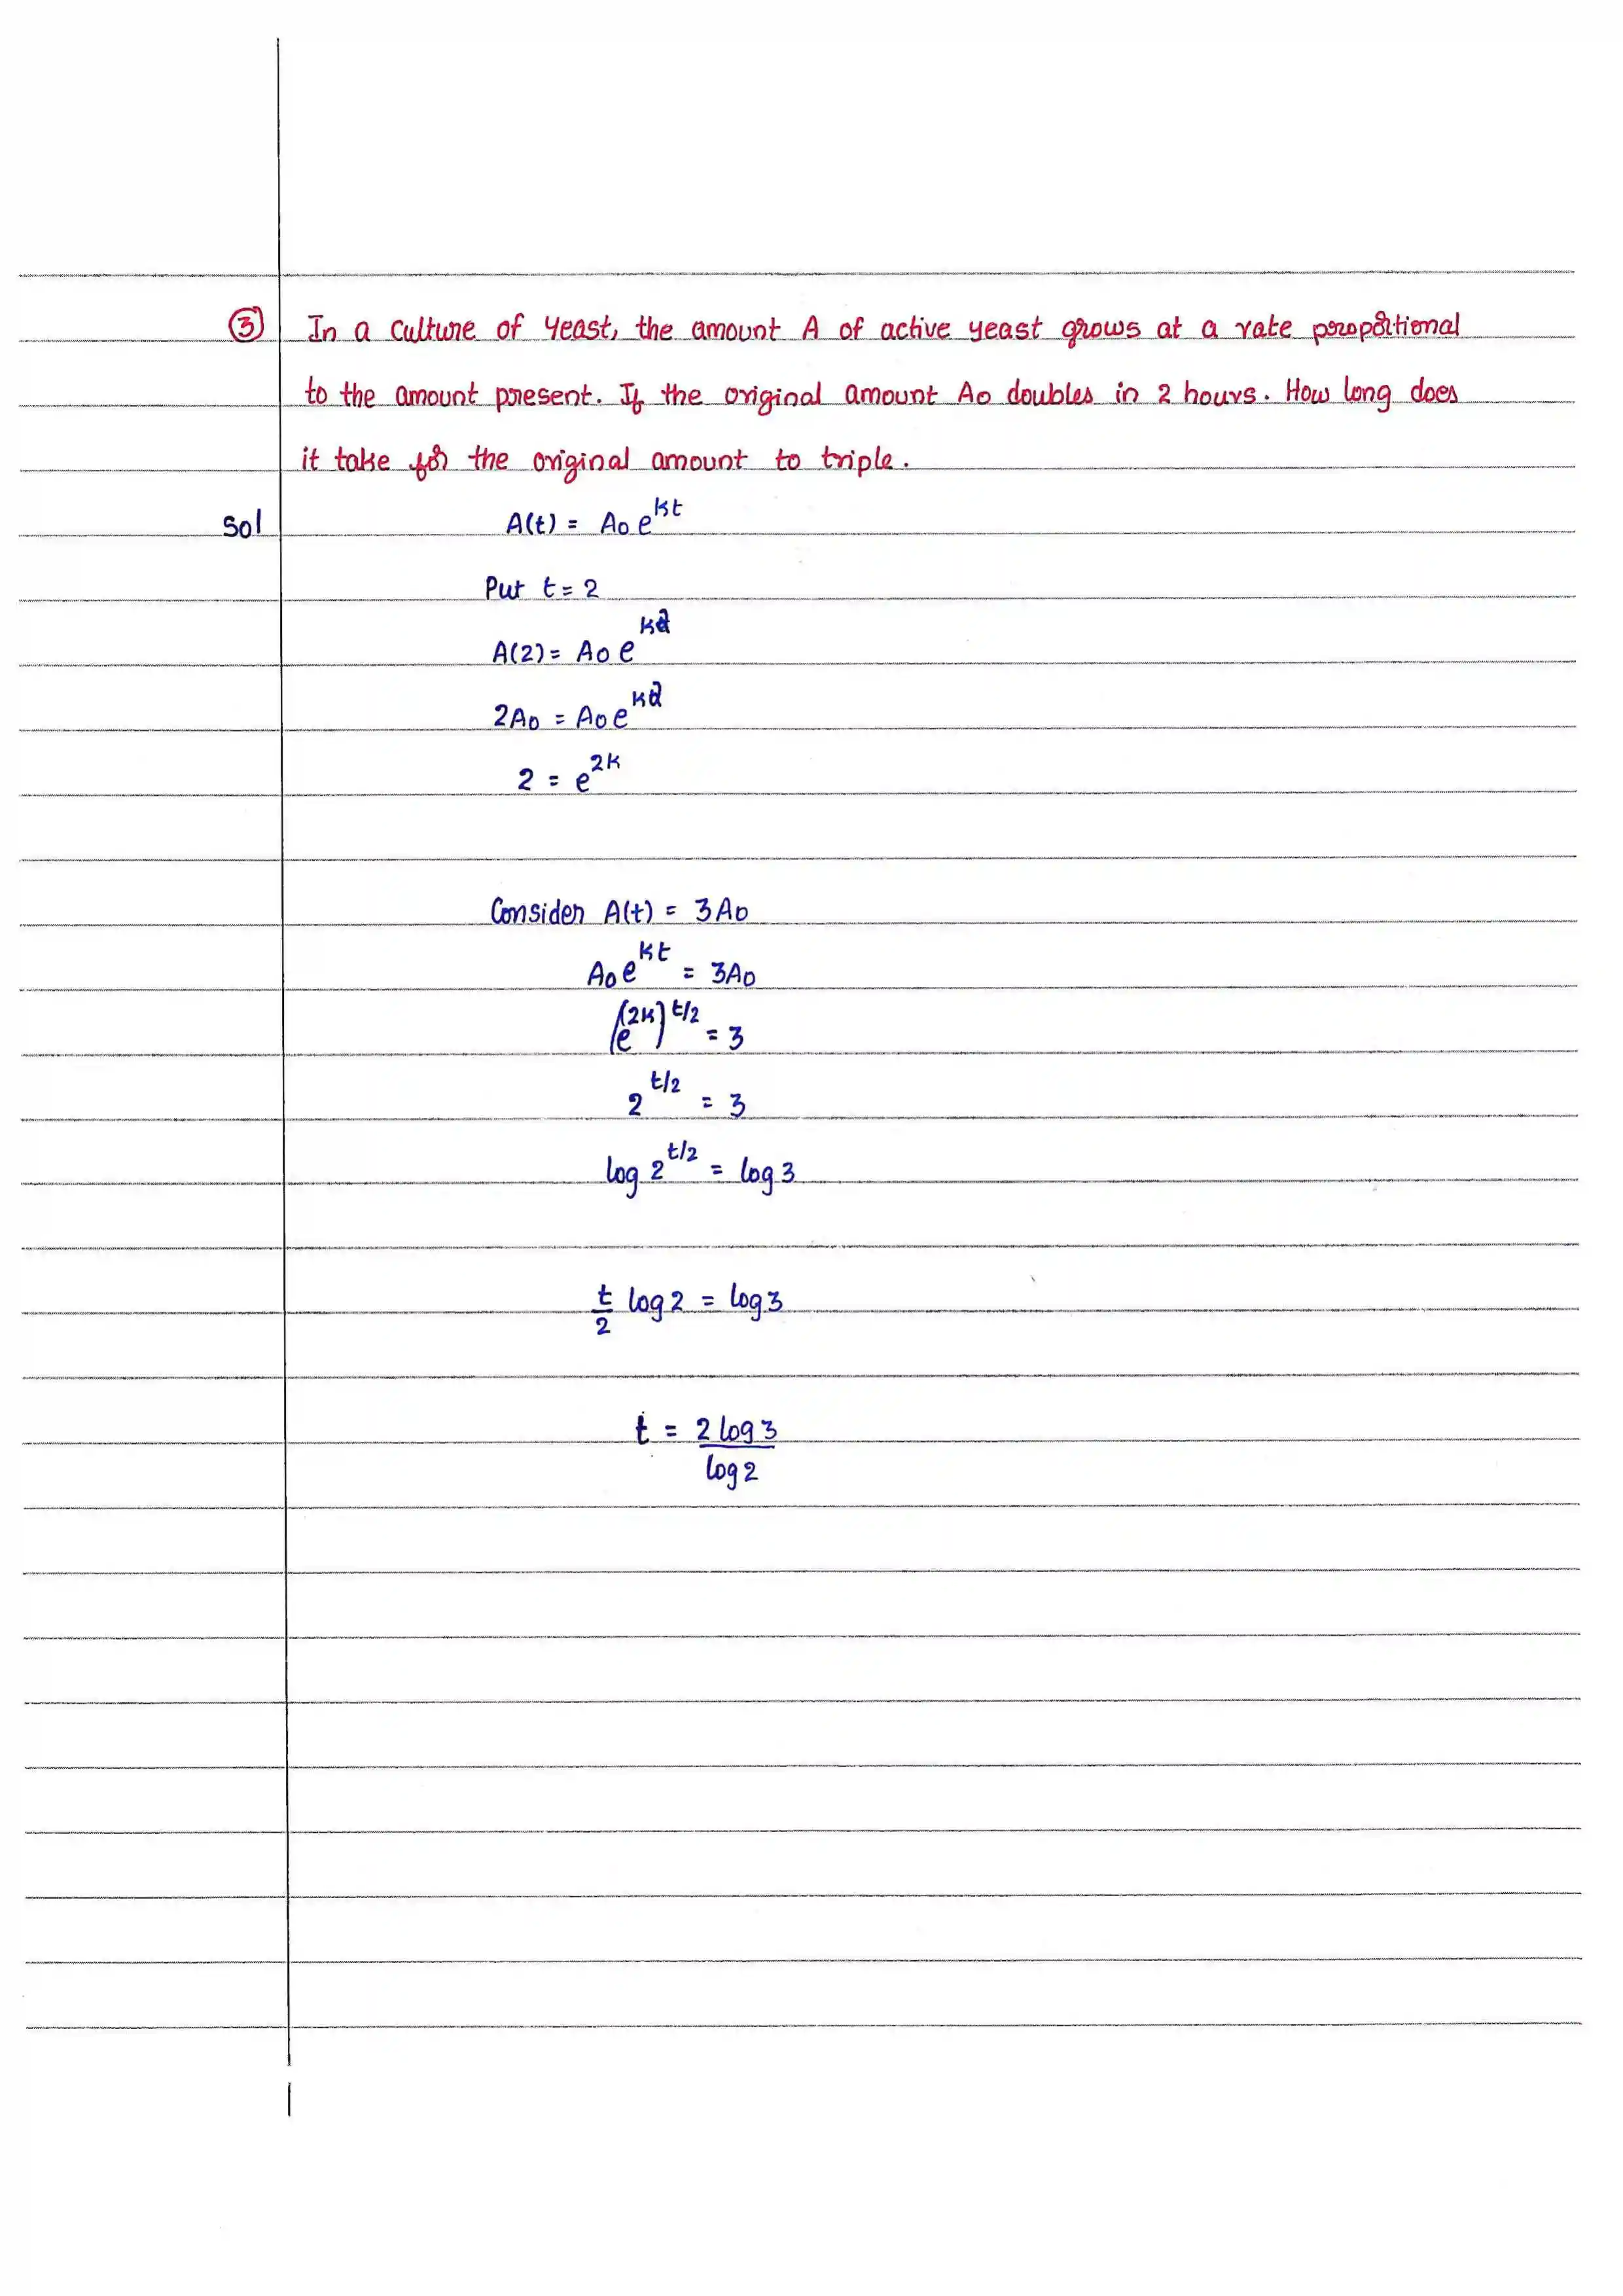 ③ In a culture of yeast, the amount A of active yeast grows at a rate proportional
to the amount present. If the original amount A₀ doubles in 2 hours. How long does
it take for the original amount to triple.
Sol A(t) = A₀ e^{kt}
Put t = 2
A(2) = A₀ e^{k2}
2A₀ = A₀ e^{k2}
2 = e^{2k}
Consider A(t) = 3A₀
A₀ e^{kt} = 3A₀
(e^{2k})^{t/2} = 3
2^{t/2} = 3
log 2^{t/2} = log 3
t/2 log 2 = log 3
t = 2 log 3 / log 2